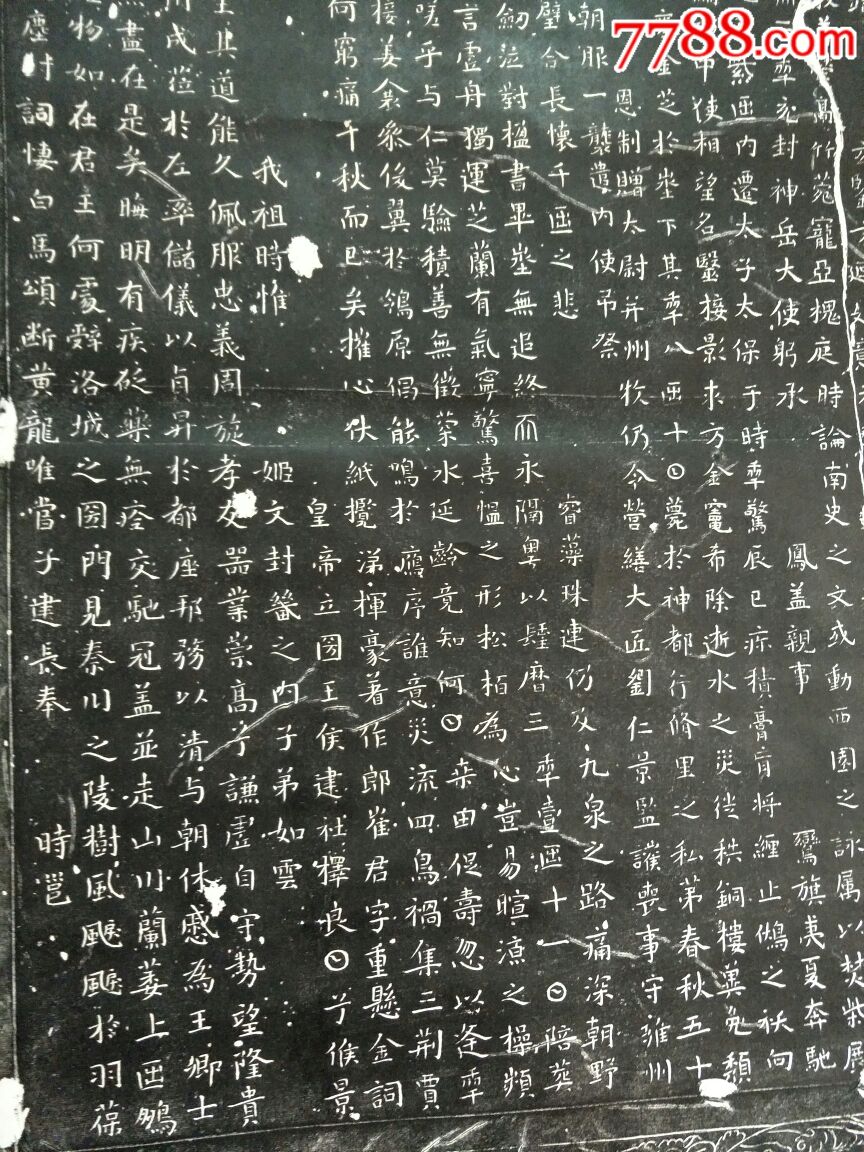 為竹苑寵亞槐庭時論南史之文或動西園之詠屬以焚柴展
𠡦充封神岳大使躬承 鳳蓋親事 鸞旗夷夏奔馳
紫𠥱內遷太子太保于時𠡦驚辰巳疹積膏肓將纏止鵩之祅向
中使相望名毉接影求方金竈希除逝水之災徙秩銅樓冀免頹
金芝於坐下其𠡦八𠥱十〇薨於神都行脩里之私第春秋五十
恩制贈太尉并州牧仍令營繕大匠劉仁景監護喪事守雍州
朝服一襲遣內使弔祭
璧合長懷千𠥱之悲 睿藻珠連仍及九泉之路痛深朝野
劒泣對楹書畢坐無追終而永隔粵以曆三𠡦壹𠥱十一〇陪葬
言虛舟獨運芝蘭有氣寧驚喜慍之形松栢為心豈易暄涼之操頻
嗟乎与仁莫驗積善無徵菊水延齡竟知何〇桒田促壽忽以逢𠡦
接姜衾後翼於鴒原倡能鳴於鴈序誰意災流四鳥禍集三荆賈
何窮痛千秋而已矣摧心伏紙攬涕揮豪著作郎崔君字重懸金詞
皇帝立圀王侯建社擇良〇兮候景
我祖時惟 姬文封畿之內子弟如雲
主其道能久佩服忠義周旋孝友器業崇高兮謙虛自守勢望隆貴
川成蒞於左率儲儀以貞昇於都座邦務以清与朝休慼為王卿士
盡在是矣晦明有疾砭藥無痊交馳冠盖並走山川蘭萎上𠥱鵩
物如在君主何處辭洛城之圀門見秦川之陵樹風颸颸於羽葆
塵對詞悽白馬頌斷黃龍唯嘗子建長奉 時邕
7788.com